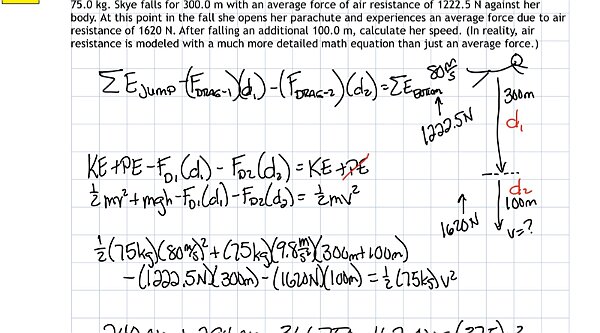 75.0 kg. Skye falls for 300.0 m with an average force of air resistance of 1222.5 N against her
body. At this point in the fall she opens her parachute and experiences an average force due to air
resistance of 1620 N. After falling an additional 100.0 m, calculate her speed. (In reality, air
resistance is modeled with a much more detailed math equation than just an average force.)
ΣE_JUMP - (F_DRAG-1)(d₁) - (F_DRAG-2)(d₂) = ΣE_BOTTOM
80 m/s
300m
1222.5N
d₁
KE + PE - F_D₁(d₁) - F_D2(d₂) = KE + PE
½mv² + mgh - F_D₁(d₁) - F_D2(d₂) = ½mv²
d₂
100m
1620N
v=?
½(75kg)(80 m/s)² + (75kg)(9.8 m/s²)(300m+100m)
- (1222.5N)(300m) - (1620N)(100m) = ½(75kg)v²